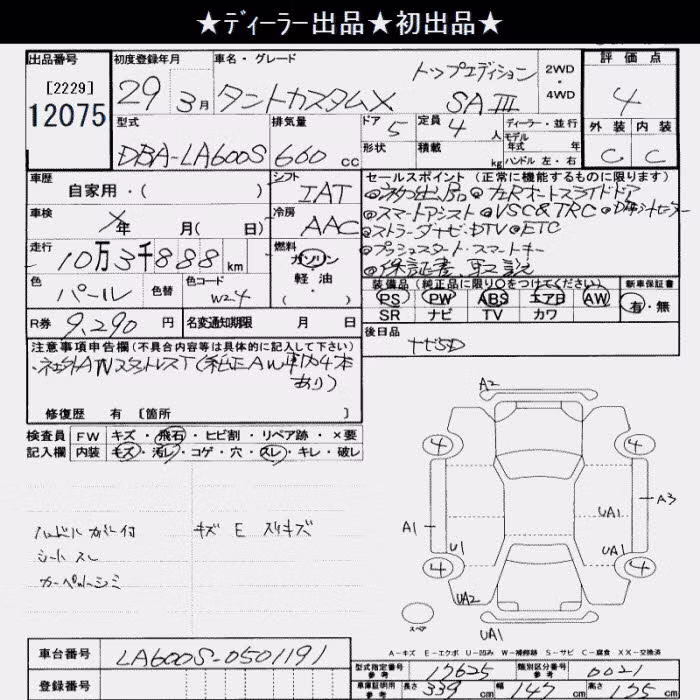 ★ディーラー出品★初出品★
出品番号
[2229]
12075
初度登録年月
29年 3月
車名・グレード
タントカスタムX トップエディション SAⅢ
2WD・4WD
評価点
4
外装 内装
C C
型式
DBA-LA600S
排気量
660 cc
ドア 5
定員 4 人
形状
積載 kg
ディーラー・並行
モデル年式 年式
ハンドル 左・右
車歴
自家用・( )
シフト
IAT
車検
年 月( 日)
冷房
AAC
走行
10万3千888 km
燃料
ガソリン
軽油
( )
色
パール
色替
色コード
W24
R券
9,290 円
名変通知期限 月 日
セールスポイント (正常に機能するものに限ります)
スマートアシスト ◎VSC&TRC
DTV ◎ETC
◎プッシュスタート・スマートキー
◎保証書、取説
装備品(純正品に限り○をつけてください)
新車保証書
PS PW ABS エアB AW
SR ナビ TV カワ
有・無
後日品
ナビSD
注意事項申告欄(不具合内容等は具体的に記入して下さい)
社外AWスタッドレスT(純正AW車内4本
あり)
修復歴 有 [箇所 ]
検査員記入欄
FW キズ・飛石・ヒビ割・リペア跡・×要
内装 キズ・汚レ・コゲ・穴・スレ・キレ・破レ
ハンドル カバー付 キズ E スリキズ
シート スレ
カーペット シミ
A2
4 4
A1 A3
UA1
U1 UA1
4 4
UA2
スペア
UA1
A-キズ E-エクボ U-凹み W-補修跡 S-サビ C-腐食 XX-交換済
車台番号
LA600S-0501191
登録番号
型式指定番号 参考
17625
類別区分番号 参考
0021
車庫証明用 参考
長さ 339 cm
幅 147 cm
高さ cm